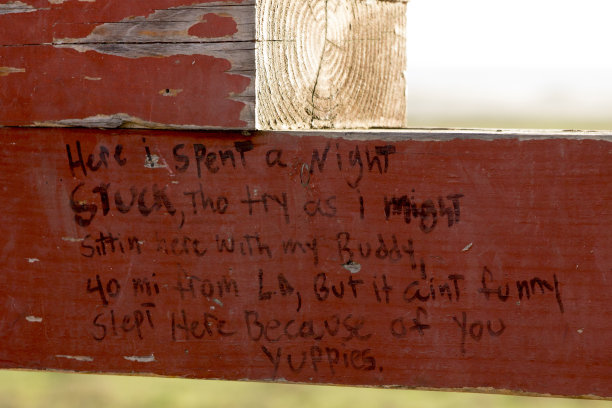 Here i spent a Night
Stuck, tho try as I might
Sittin here with my Buddy,
40 mi from LA, But it aint funny
Slept Here Because of you
Yuppies.